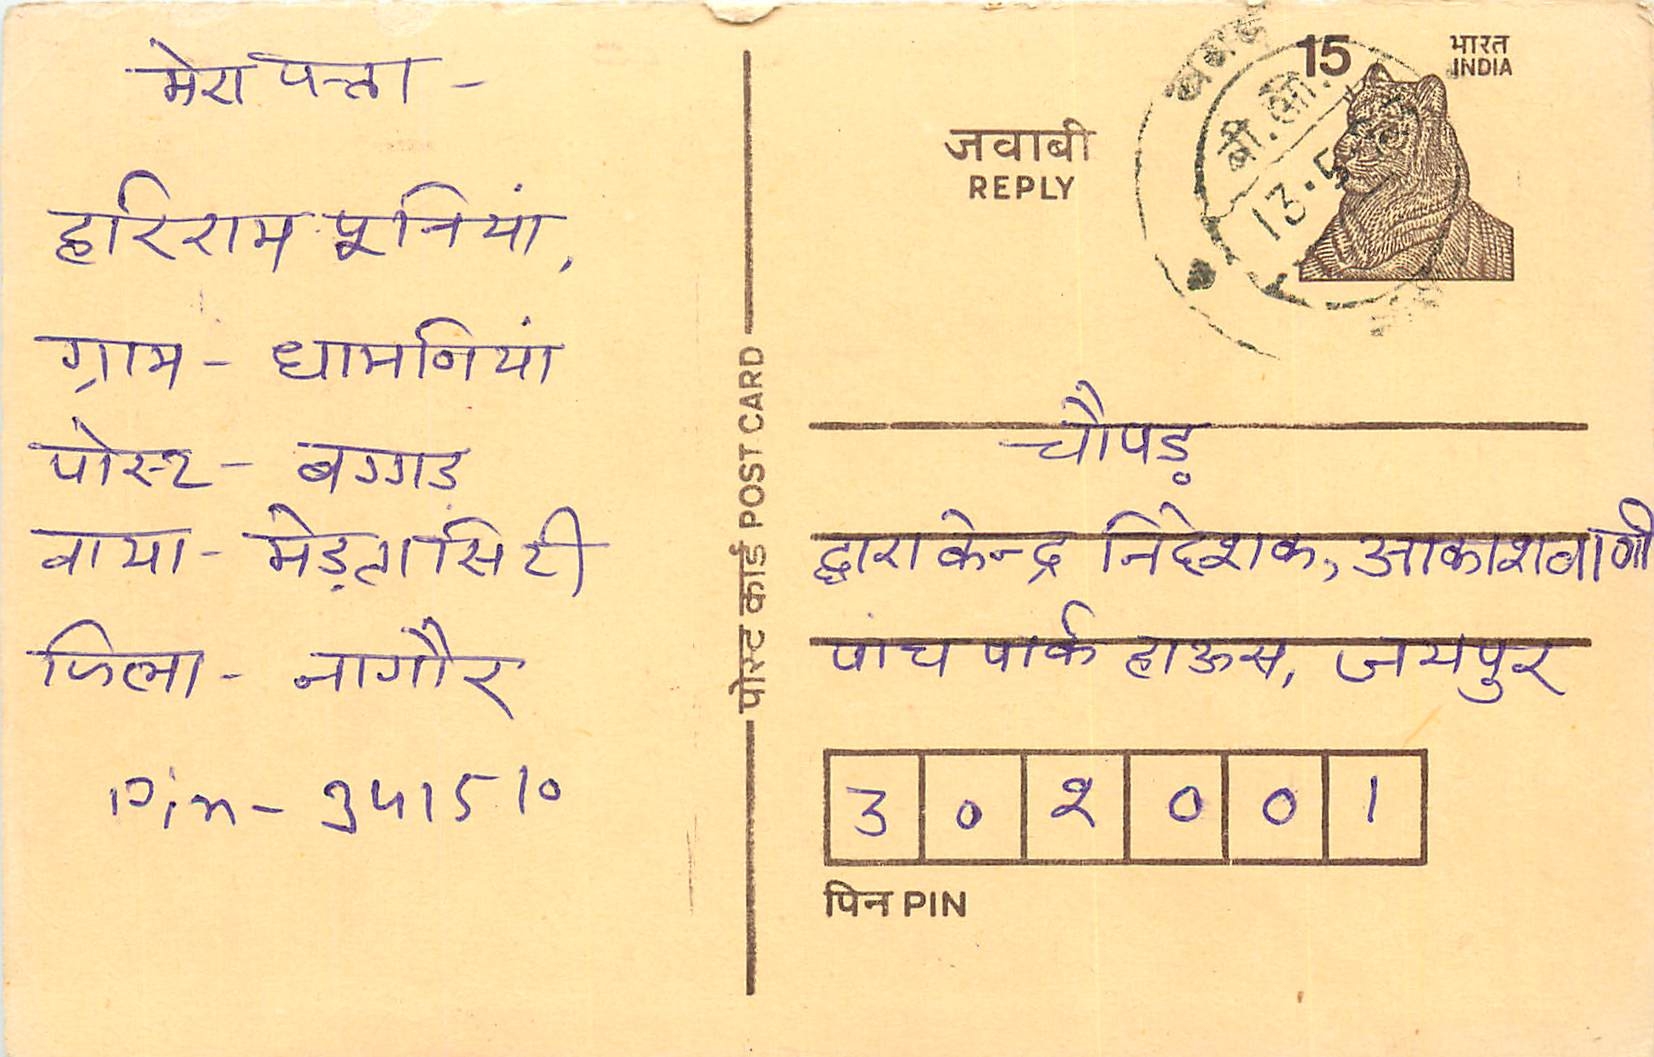 मेरा पत्ता -
हरिराम पूनियां,
ग्राम - धामनियां
पोस्ट - बग्गड़
वाया - मेड़ता सिटी
जिला - नागौर
Pin - 341510
पोस्ट कार्ड POST CARD
15
भारत
INDIA
जवाबी
REPLY
बी.ओ.
13.5
चौपड़
द्वारा केन्द्र निदेशक, आकाशवाणी
पांच पार्क हाऊस, जयपुर
302001
पिन PIN